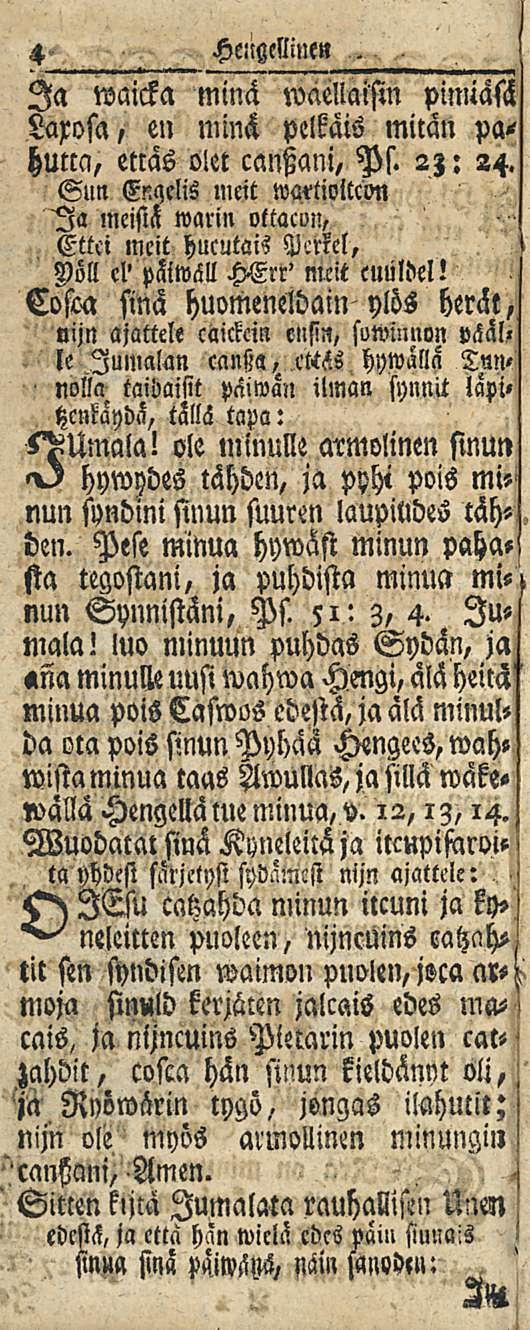 4 Hengellinen
Ja waicka minä waellaisin pimiäsä
Laxosa, en minä pelkäis mitän pa-
hutta, ettäs olet canßani, Ps. 23: 24.
Sun Engelis meit wartioltcon
Ja meistä warin ottacon,
Ettei meit hucutais Perkel,
Yöll el' päiwäll HErr' meit cuuldel!
Cosca sinä huomeneldain ylös herät,
nijn ajattele caickein ensin, sowinnon pääl-
le Jumalan canßa, ettäs hywällä Tun-
nolla taidaisit päiwän ilman synnit läpi-
tzenkäydä, tällä tapa:
JUmala! ole minulle armolinen sinun
hywydes tähden, ja pyhi pois mi-
nun syndini sinun suuren laupiudes täh-
den. Pese minua hywäst minun paha-
sta tegostani, ja puhdista minua mi-
nun Synnistäni, Ps. 51: 3, 4. Ju-
mala! luo minuun puhdas Sydän, ja
aña minulle uusi wahwa Hengi, älä heitä
minua pois Caswos edestä, ja älä minul-
da ota pois sinun Pyhää Hengees, wah-
wista minua taas Awullas, ja sillä wäke-
wällä Hengellä tue minua, v. 12, 13, 14.
Wuodatat sinä Kyneleitä ja itcupisaroi-
ta yhdest särjetyst sydämest nijn ajattele:
O JEsu catzahda minun itcuni ja ky-
neleitten puoleen, nijncuins catzah-
tit sen syndisen waimon puolen, joca ar-
moja sinuld kerjäten jalcais edes ma-
cais, ja nijncuins Pietarin puolen cat-
zahdit, cosca hän sinun kieldänyt oli,
ja Ryöwärin tygö, jongas ilahutit;
nijn ole myös armollinen minungin
canßani, Amen.
Sitten kijtä Jumalata rauhallisen Unen
edestä, ja että hän wielä edes päin siunais
sinua sinä päiwänä, näin sanoden: